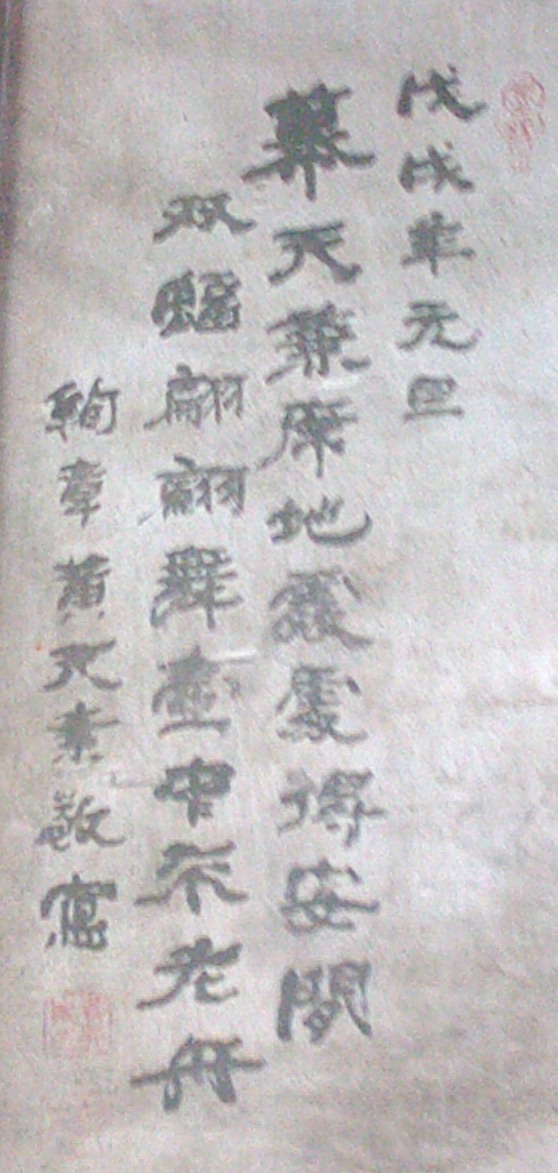 戊戌年元旦
幕天兼席地處處得安閒
双蝠翩翩舞壺中不老丹
章黃文素敬寫